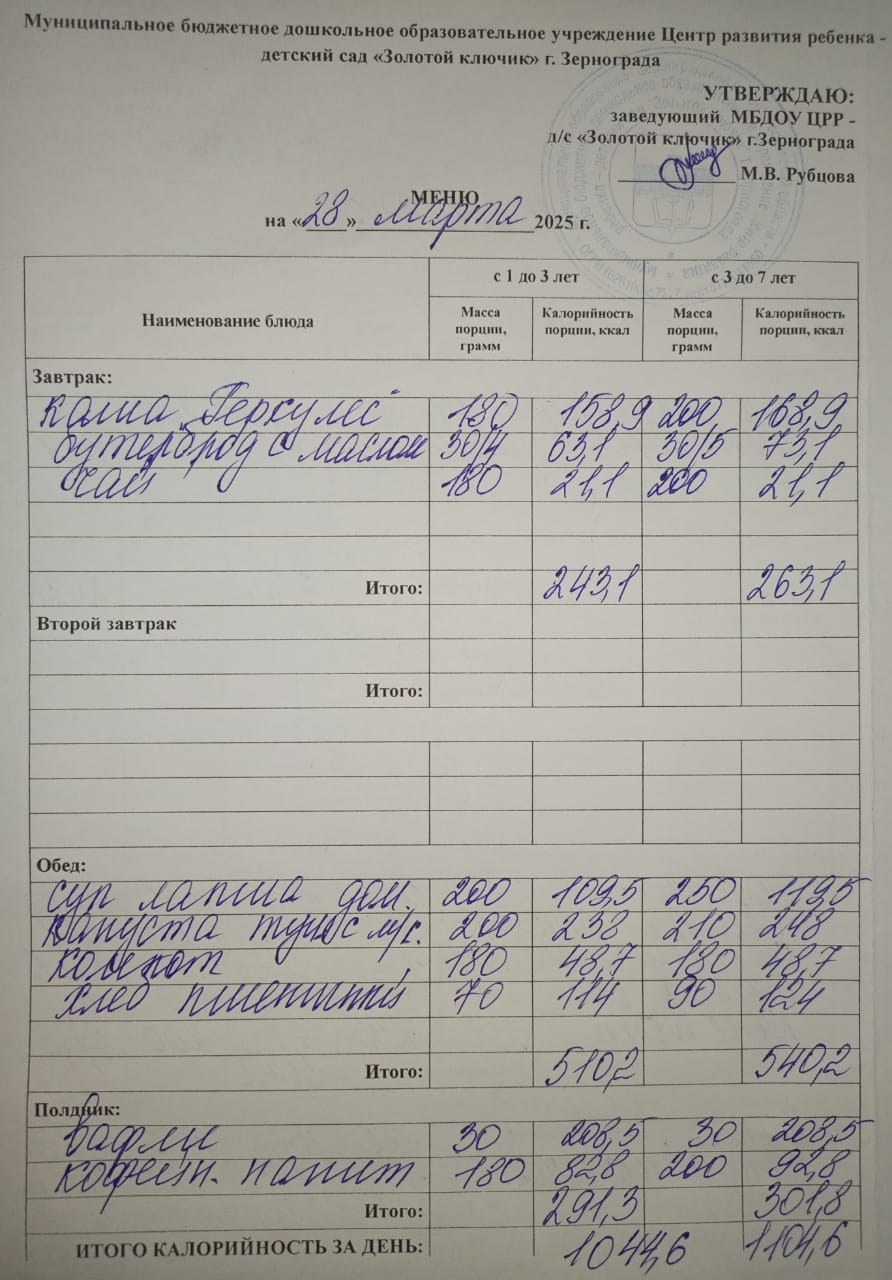 Муниципальное бюджетное дошкольное образовательное учреждение Центр развития ребенка -
детский сад «Золотой ключик» г. Зернограда
УТВЕРЖДАЮ:
заведующий МБДОУ ЦРР -
д/с «Золотой ключик» г.Зернограда
М.В. Рубцова
МЕНЮ
на «28» марта 2025 г.
Наименование блюда с 1 до 3 лет с 3 до 7 лет
Масса порции, грамм Калорийность порции, ккал Масса порции, грамм Калорийность порции, ккал
Завтрак:
каша "Геркулес" 180 158,9 200 168,9
бутерброд с маслом 30/4 63,1 30/5 73,1
чай 180 21,1 200 21,1
Итого: 243,1 263,1
Второй завтрак
Итого:
Обед:
суп лапша дом. 200 109,5 250 119,5
капуста туш с м/с. 200 238 210 248
компот 180 48,7 180 48,7
хлеб пшеничный 70 114 90 124
Итого: 510,2 540,2
Полдник:
вафли 30 208,5 30 208,5
кофейн. напит 180 82,8 200 92,8
Итого: 291,3 301,8
ИТОГО КАЛОРИЙНОСТЬ ЗА ДЕНЬ: 1044,6 1104,6